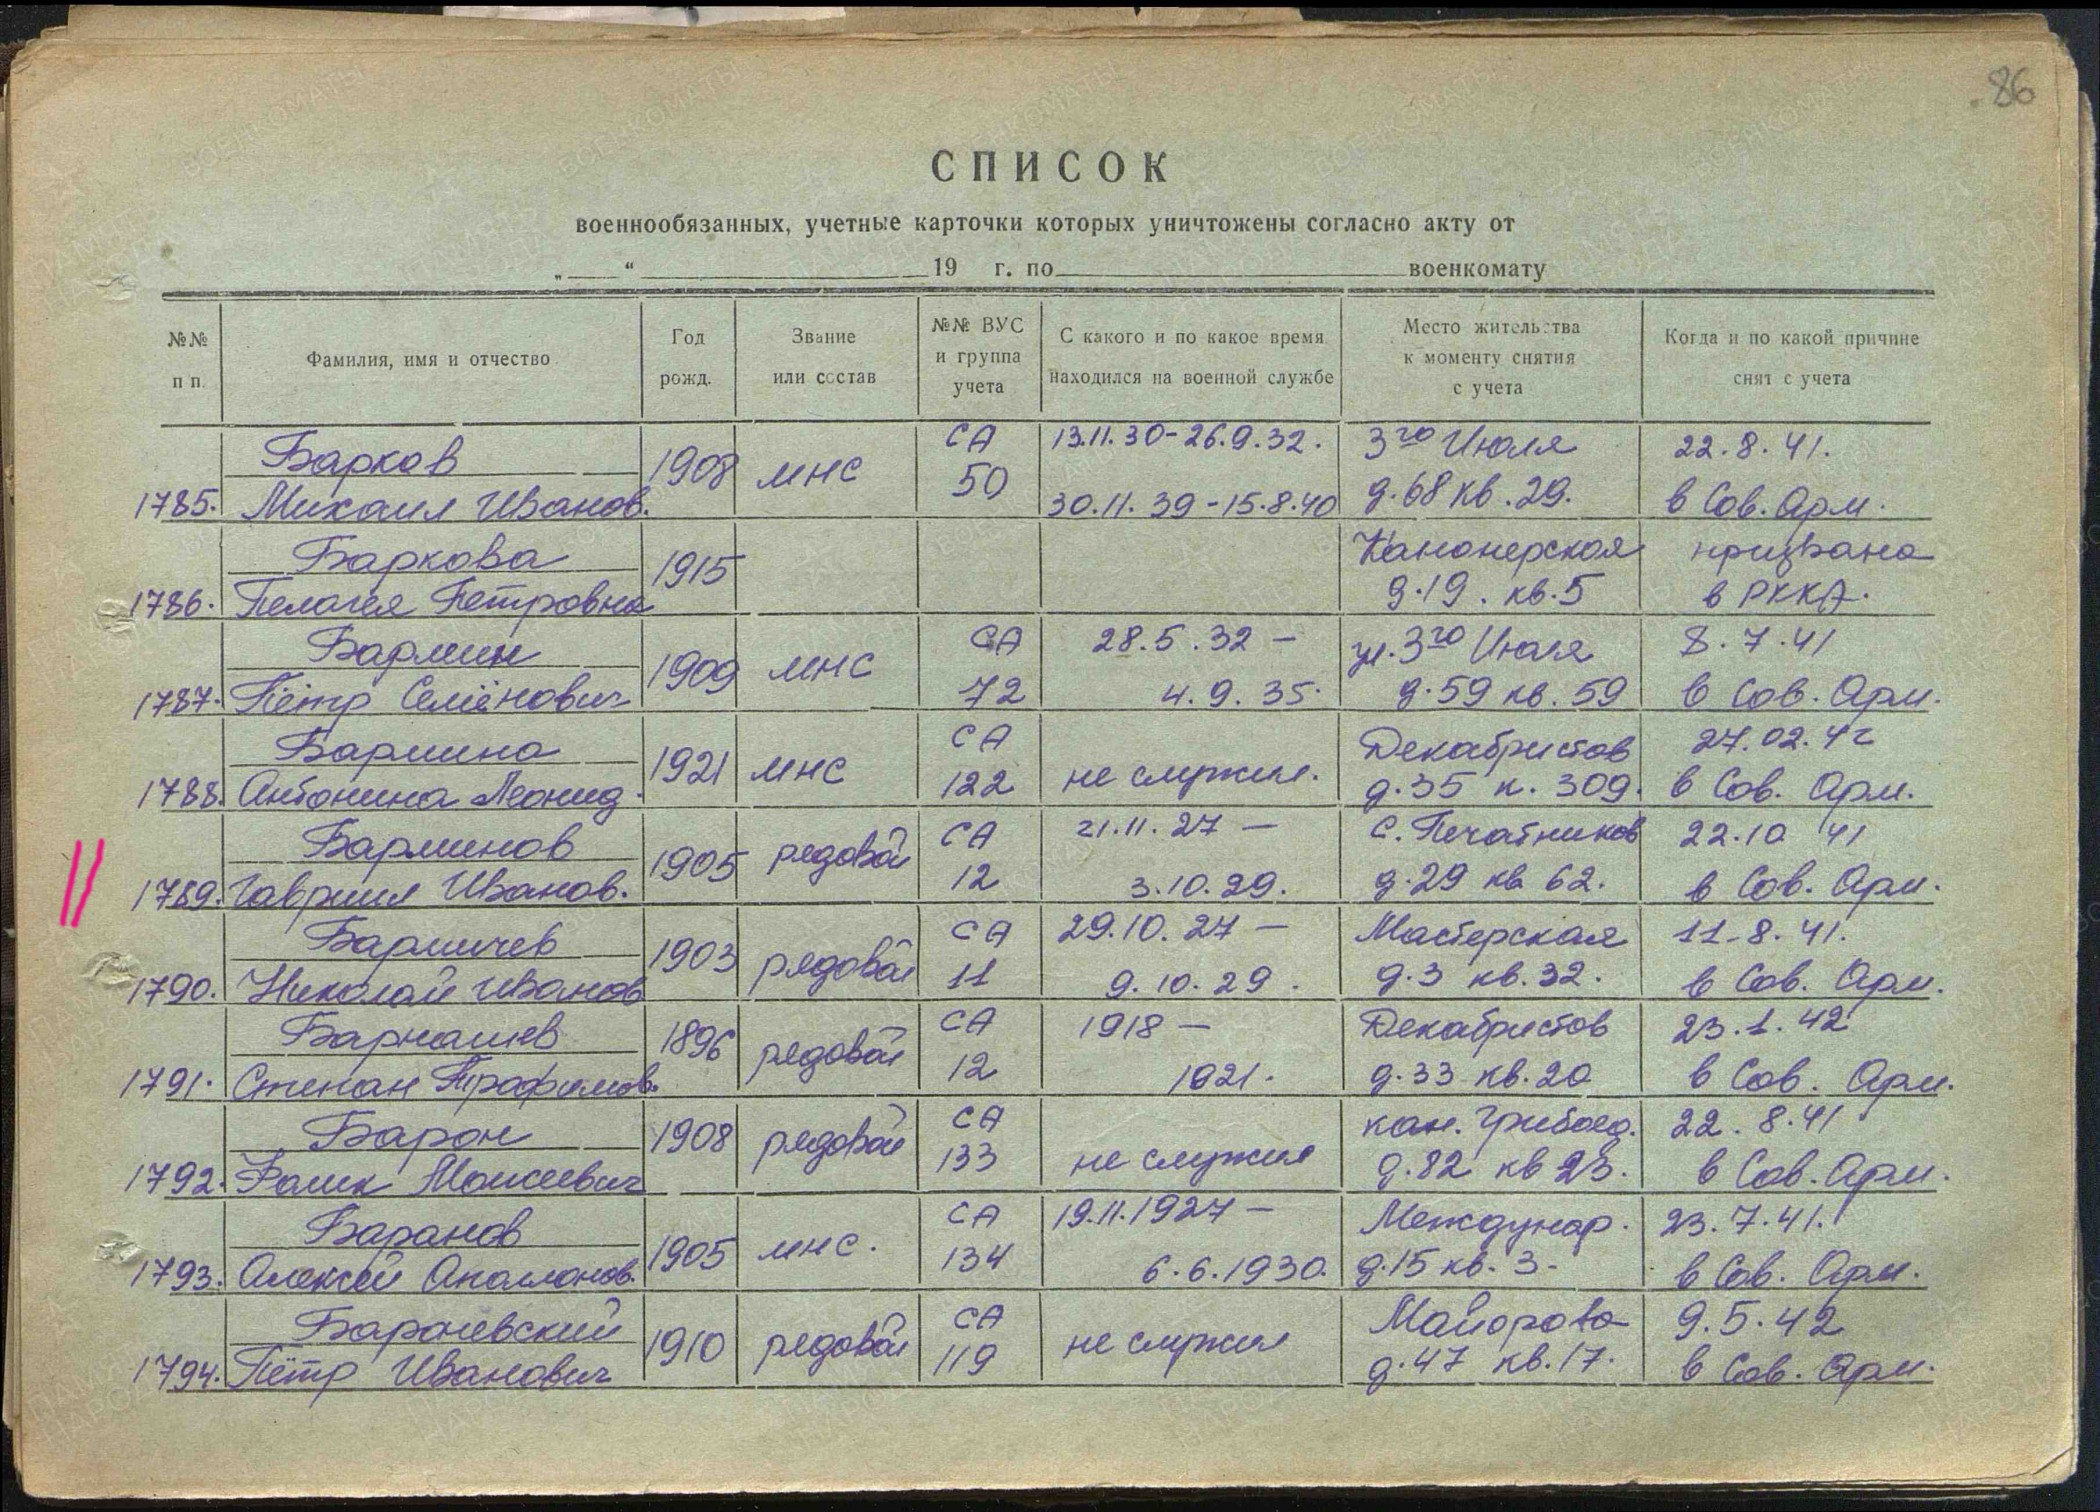 86
СПИСОК
военнообязанных, учетные карточки которых уничтожены согласно акту от
„ “ 19 г. по военкомату
№№ п п.
Фамилия, имя и отчество
Год рожд.
Звание или состав
№№ ВУС и группа учета
С какого и по какое время находился на военной службе
Место жительства к моменту снятия с учета
Когда и по какой причине снят с учета
Барков СА 13.11.30-26.9.32. 3го Июля 22.8.41.
1785. Михаил Иванов. 1908 мнс 50 30.11.39-15.8.40 д.68 кв.29. в Сов. Арм.
Баркова 1915 Канонерская призвана
1786. Пелагея Петровна д.19. кв.5 в РККА.
Бармин СА 28.5.32 - ул. 3го Июля 8.7.41
1787. Пётр Семёнович 1909 мнс 72 4.9.35. д.59 кв.59 в Сов. Арм.
Бармина СА Декабристов 27.02.42
1788. Антонина Леонид. 1921 мнс 122 не служил. д.35 к.309. в Сов. Арм.
Барминов СА 21.11.27 - С. Печатников 22.10 41
1789. Гавриил Иванов. 1905 рядовой 12 3.10.29. д.29 кв 62. в Сов. Арм.
Бармичев СА 29.10.27 - Мастерская 11-8.41.
1790. Николай Иванов 1903 рядовой 11 9.10.29. д.3 кв.32. в Сов. Арм.
Барнашев СА 1918 - Декабристов 23.1.42
1791. Степан Трофимов. 1896 рядовой 12 1921. д.33 кв.20 в Сов. Арм.
Барон СА кан. Грибоед. 22.8.41
1792. Моисеевич 1908 рядовой 133 не служил д.82 кв 23. в Сов. Арм.
Баранов СА 19.11.1927 - Междунар. 23.7.41.
1793. Алексей 1905 мнс. 134 6.6.1930. д.15 кв.3- в Сов. Арм.
СА Майорова 9.5.42
1794. Пётр Иванович 1910 рядовой 119 не служил д.47 кв.17. в Сов. Арм.